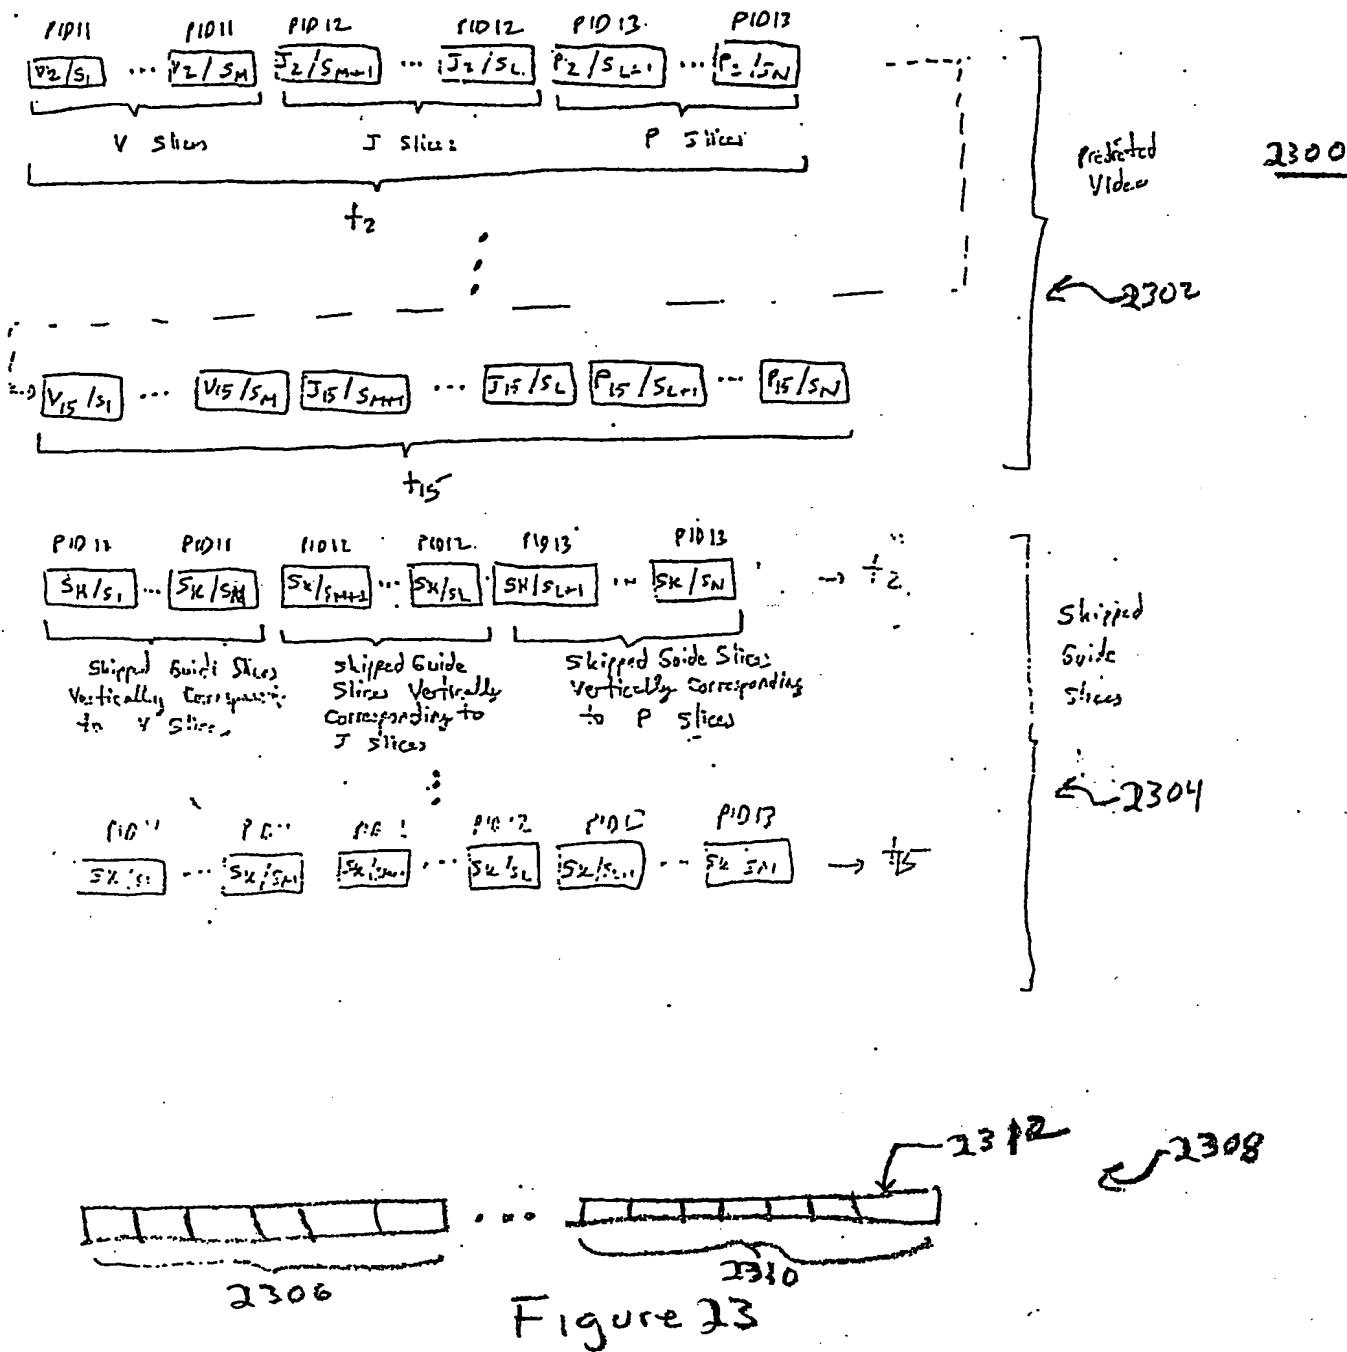 PID11 PID11 PID12 PID12 PID13 PID13
V2/S1 ... V2/SM J2/SM+1 ... J2/SL P2/SL+1 ... P2/SN
V Slices J Slices P Slices
t2
Predicted
Video
2300
2302
V15/S1 ... V15/SM J15/SM+1 ... J15/SL P15/SL+1 ... P15/SN
t15
PID11 PID11 PID12 PID12 PID13 PID13
SK/S1 ... SK/SM SK/SM+1 ... SK/SL SK/SL+1 ... SK/SN → t2
Skipped Guide Slices
Vertically Corresponding
to V Slices
Skipped Guide
Slices Vertically
Corresponding to
J Slices
Skipped Guide Slices
Vertically Corresponding
to P Slices
Skipped
Guide
Slices
2304
PID12 PID13
SK/S1 ... SK/SM ... SK/SL SK/SL+1 ... → t15
2312
2308
2306
2310
Figure 23